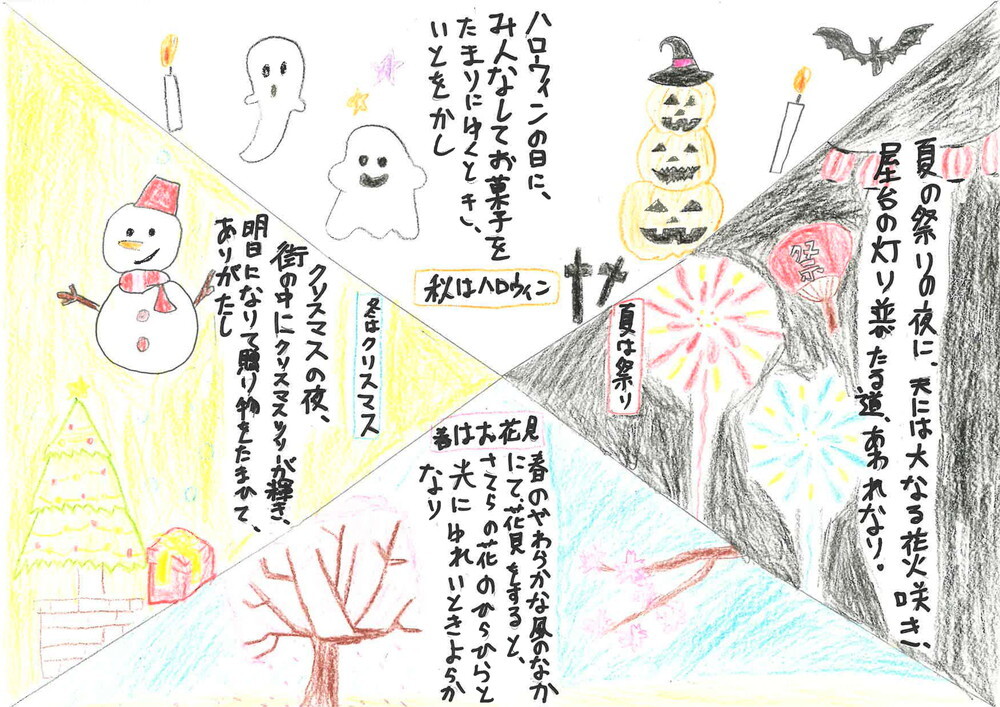 ハロウィンの日に、
み人なしてお菓子を
たまりにゆくとき、
いとをかし
秋はハロウィン
夏の祭りの夜に、天には大なる花火咲き、
屋台の灯り並びたる道、あわれなり。
祭
夏は祭り
春はお花見
春のやわらかな風のなか
にて、花見をすると、
さくらの花のひらひらと
光にゆれいときよらか
なり
冬はクリスマス
クリスマスの夜、
街の中にクリスマスツリーが輝き、
明日になりて贈り物をたまひて、
ありがたし